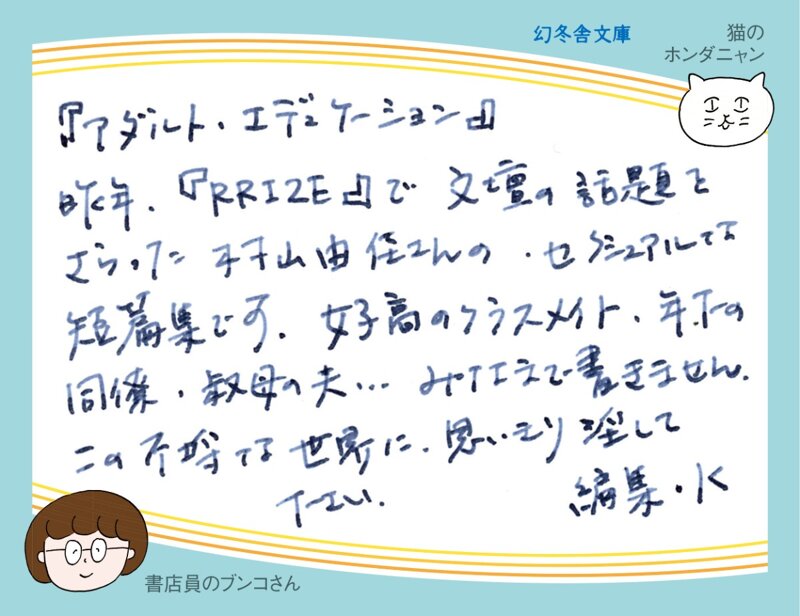 幻冬舎文庫
猫の
ホンダニャン
『アダルト・エデュケーション』
昨年、『RRIZE』で文壇の話題を
さらった村山由佳さんの、セクシュアルな
短篇集です。女子高のクラスメイト、年下の
同僚、叔母の夫… みなまで書きません。
この不埒な世界に、思いきり淫して
下さい。 編集・K
書店員のブンコさん